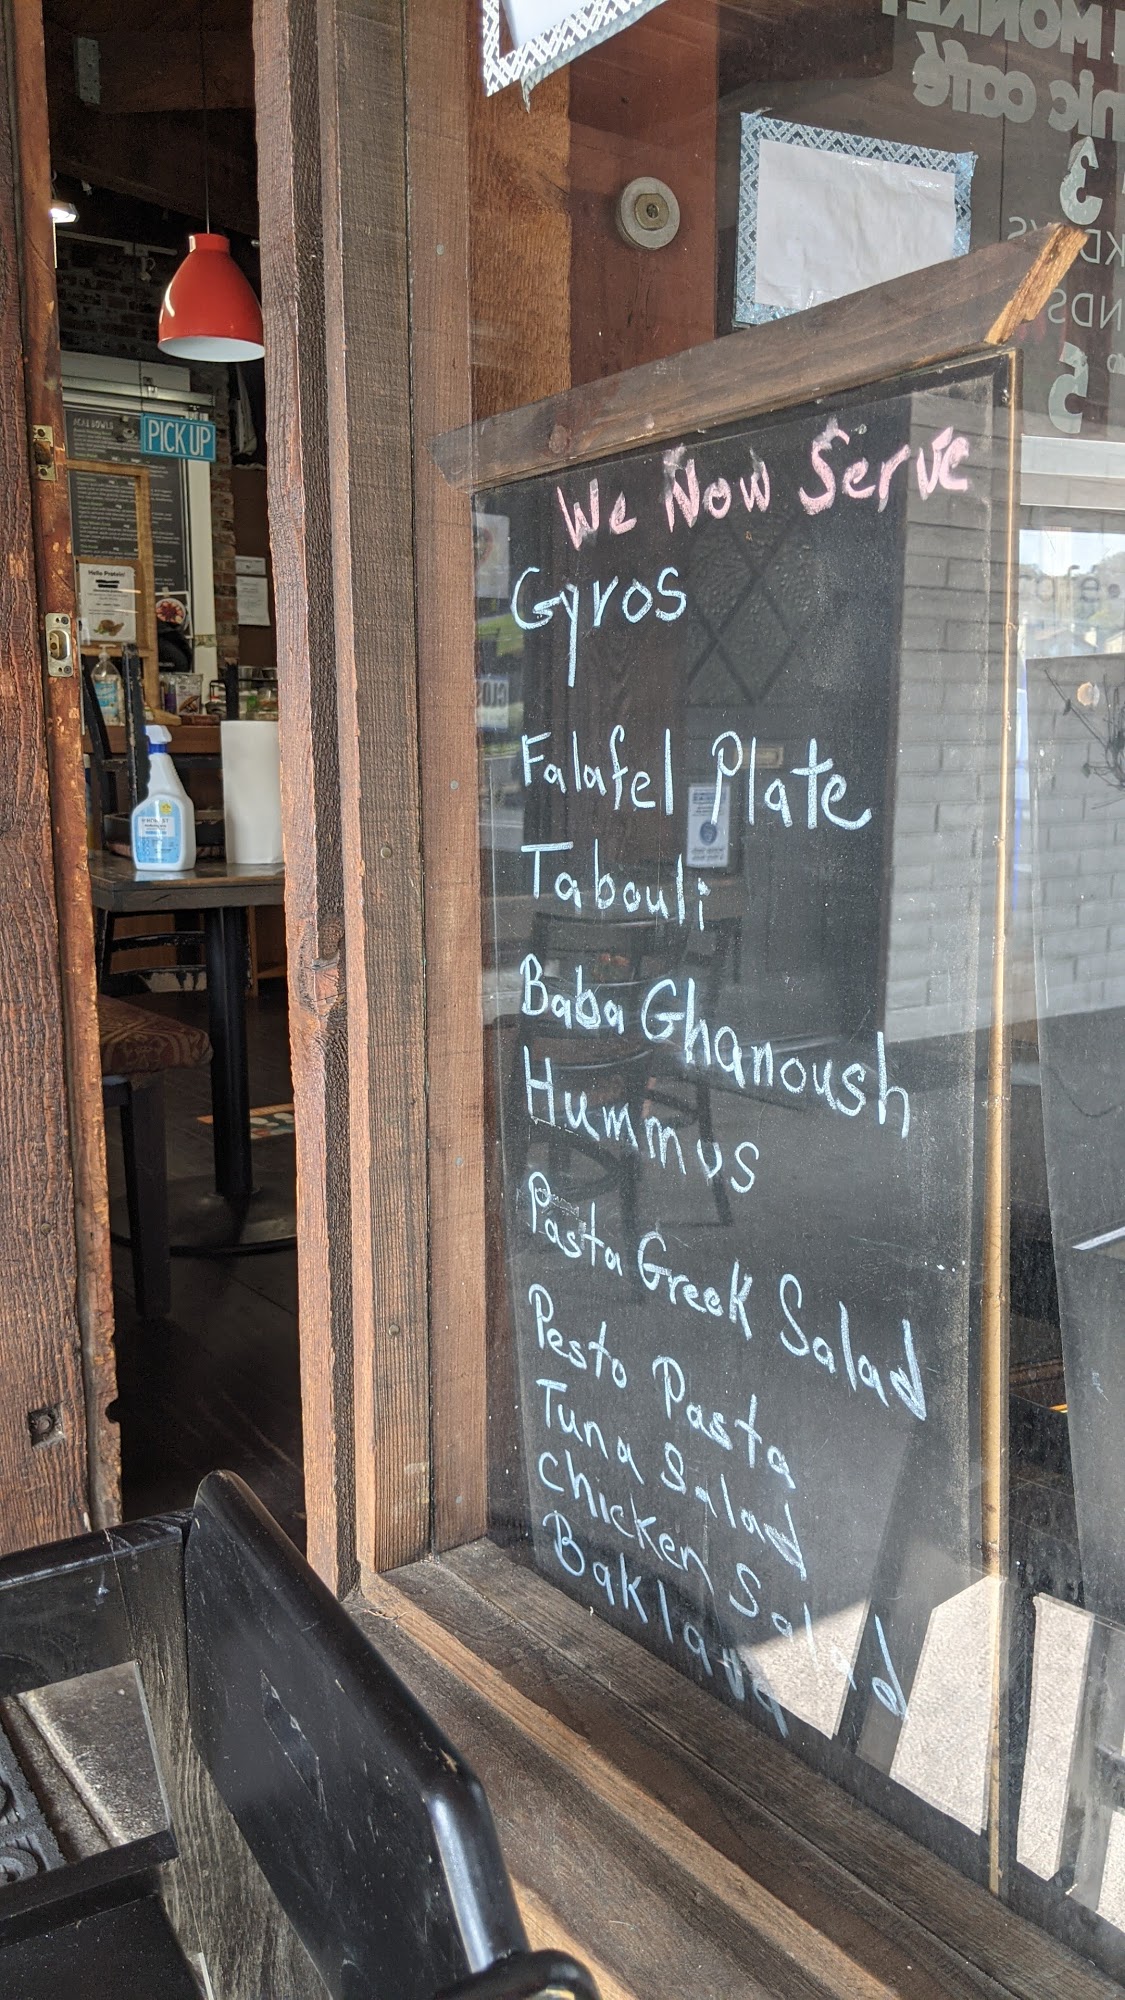 We Now Serve
Gyros
Falafel Plate
Tabouli
Baba Ghanoush
Hummus
Pasta Greek Salad
Pesto Pasta
Tuna Salad
Chicken Salad
Baklava
PICK UP
ACAI BOWLS
Hello Protein!
MONKEY
nic café
3
KDAYS
NDS
5